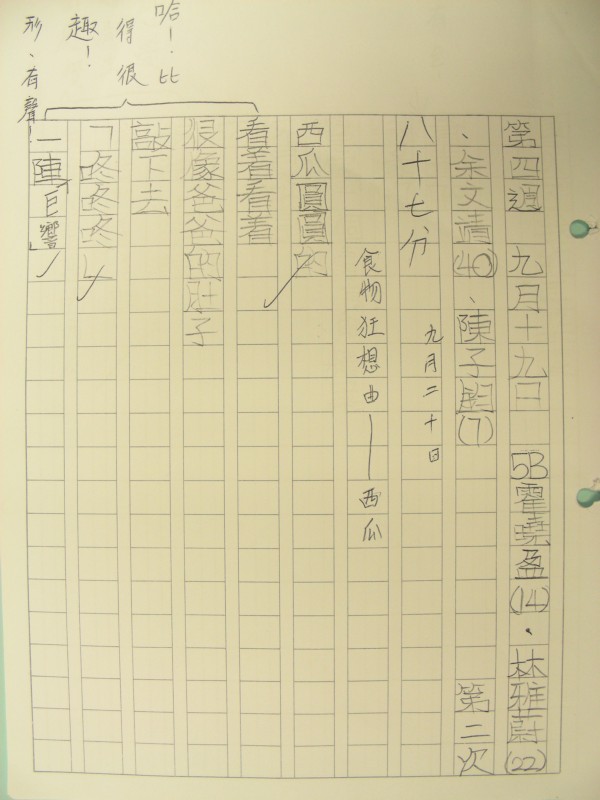 第四週 九月十九日 5B霍曉盈(14)·林雅蔚(22)
、余文靖(40)、陳子朗(7) 第二次
八十七分 九月二十日
食物狂想曲——西瓜
西瓜圓圓的
看着看着
很像爸爸的肚子
敲下去
「咚咚咚」
一陣巨響
哈！比
得很
趣！
形、有聲！